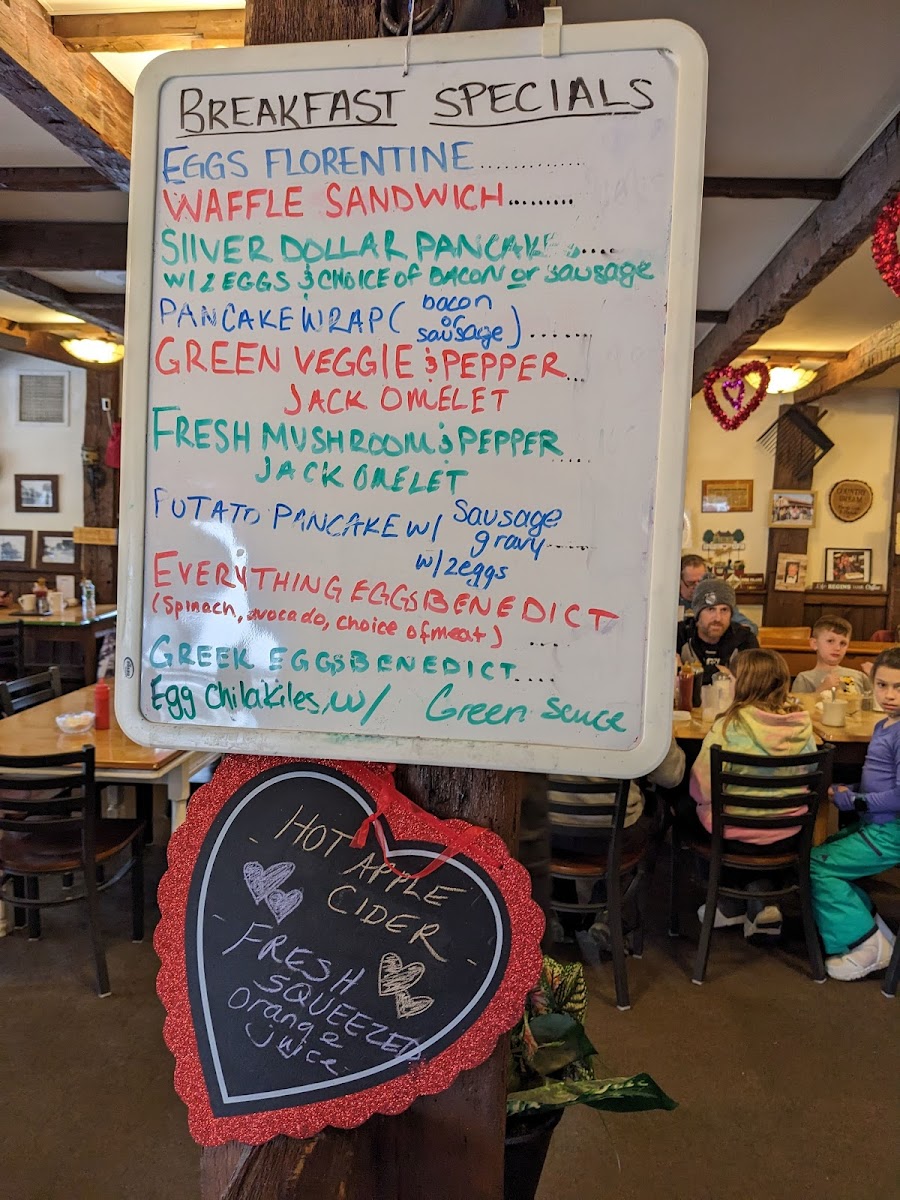 BREAKFAST SPECIALS
EGGS FLORENTINE.............
WAFFLE SANDWICH.........
SIIVER DOLLAR PANCAKES....
W/ 2 EGGS & CHOICE OF BACON or sausage
PANCAKE WRAP (bacon or sausage)........
GREEN VEGGIE & PEPPER...
JACK OMELET
FRESH MUSHROOM & PEPPER.....
JACK OMELET
POTATO PANCAKE W/ Sausage
gravy.....
w/ 2 eggs
EVERYTHING EGGS BENEDICT
(Spinach, avocado, choice of meat)....
GREEK EGGS BENEDICT.....
Egg Chilakiles, w/ Green Sauce
HOT APPLE
CIDER
FRESH
SQUEEZED
Orange
juice